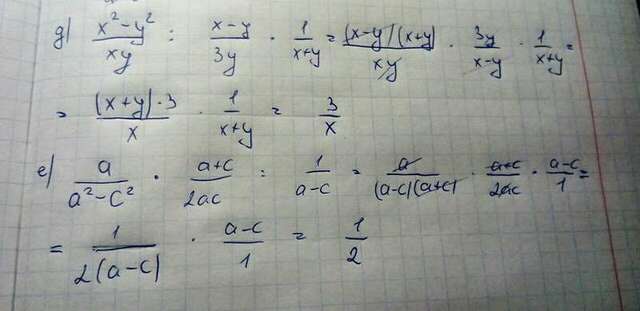 д) (x²-y²)/(xy) : (x-y)/(3y) · 1/(x+y) = ((x-y)(x+y))/(xy) · (3y)/(x-y) · 1/(x+y) =
= ((x+y)·3)/x · 1/(x+y) = 3/x
е) a/(a²-c²) · (a+c)/(2ac) : 1/(a-c) = a/((a-c)(a+c)) · (a+c)/(2ac) · (a-c)/1 =
= 1/(2(a-c)) · (a-c)/1 = 1/2